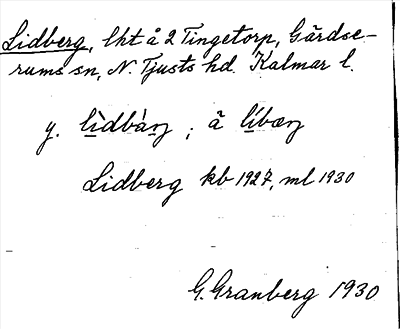 Lidberg, lht å 2 Tingetorp, Gärdse-
rums sn, N. Tjusts hd. Kalmar l.
y. lìdbàŋ ; ä líbæŋ
Lidberg kb 1927, ml 1930
G. Granberg 1930